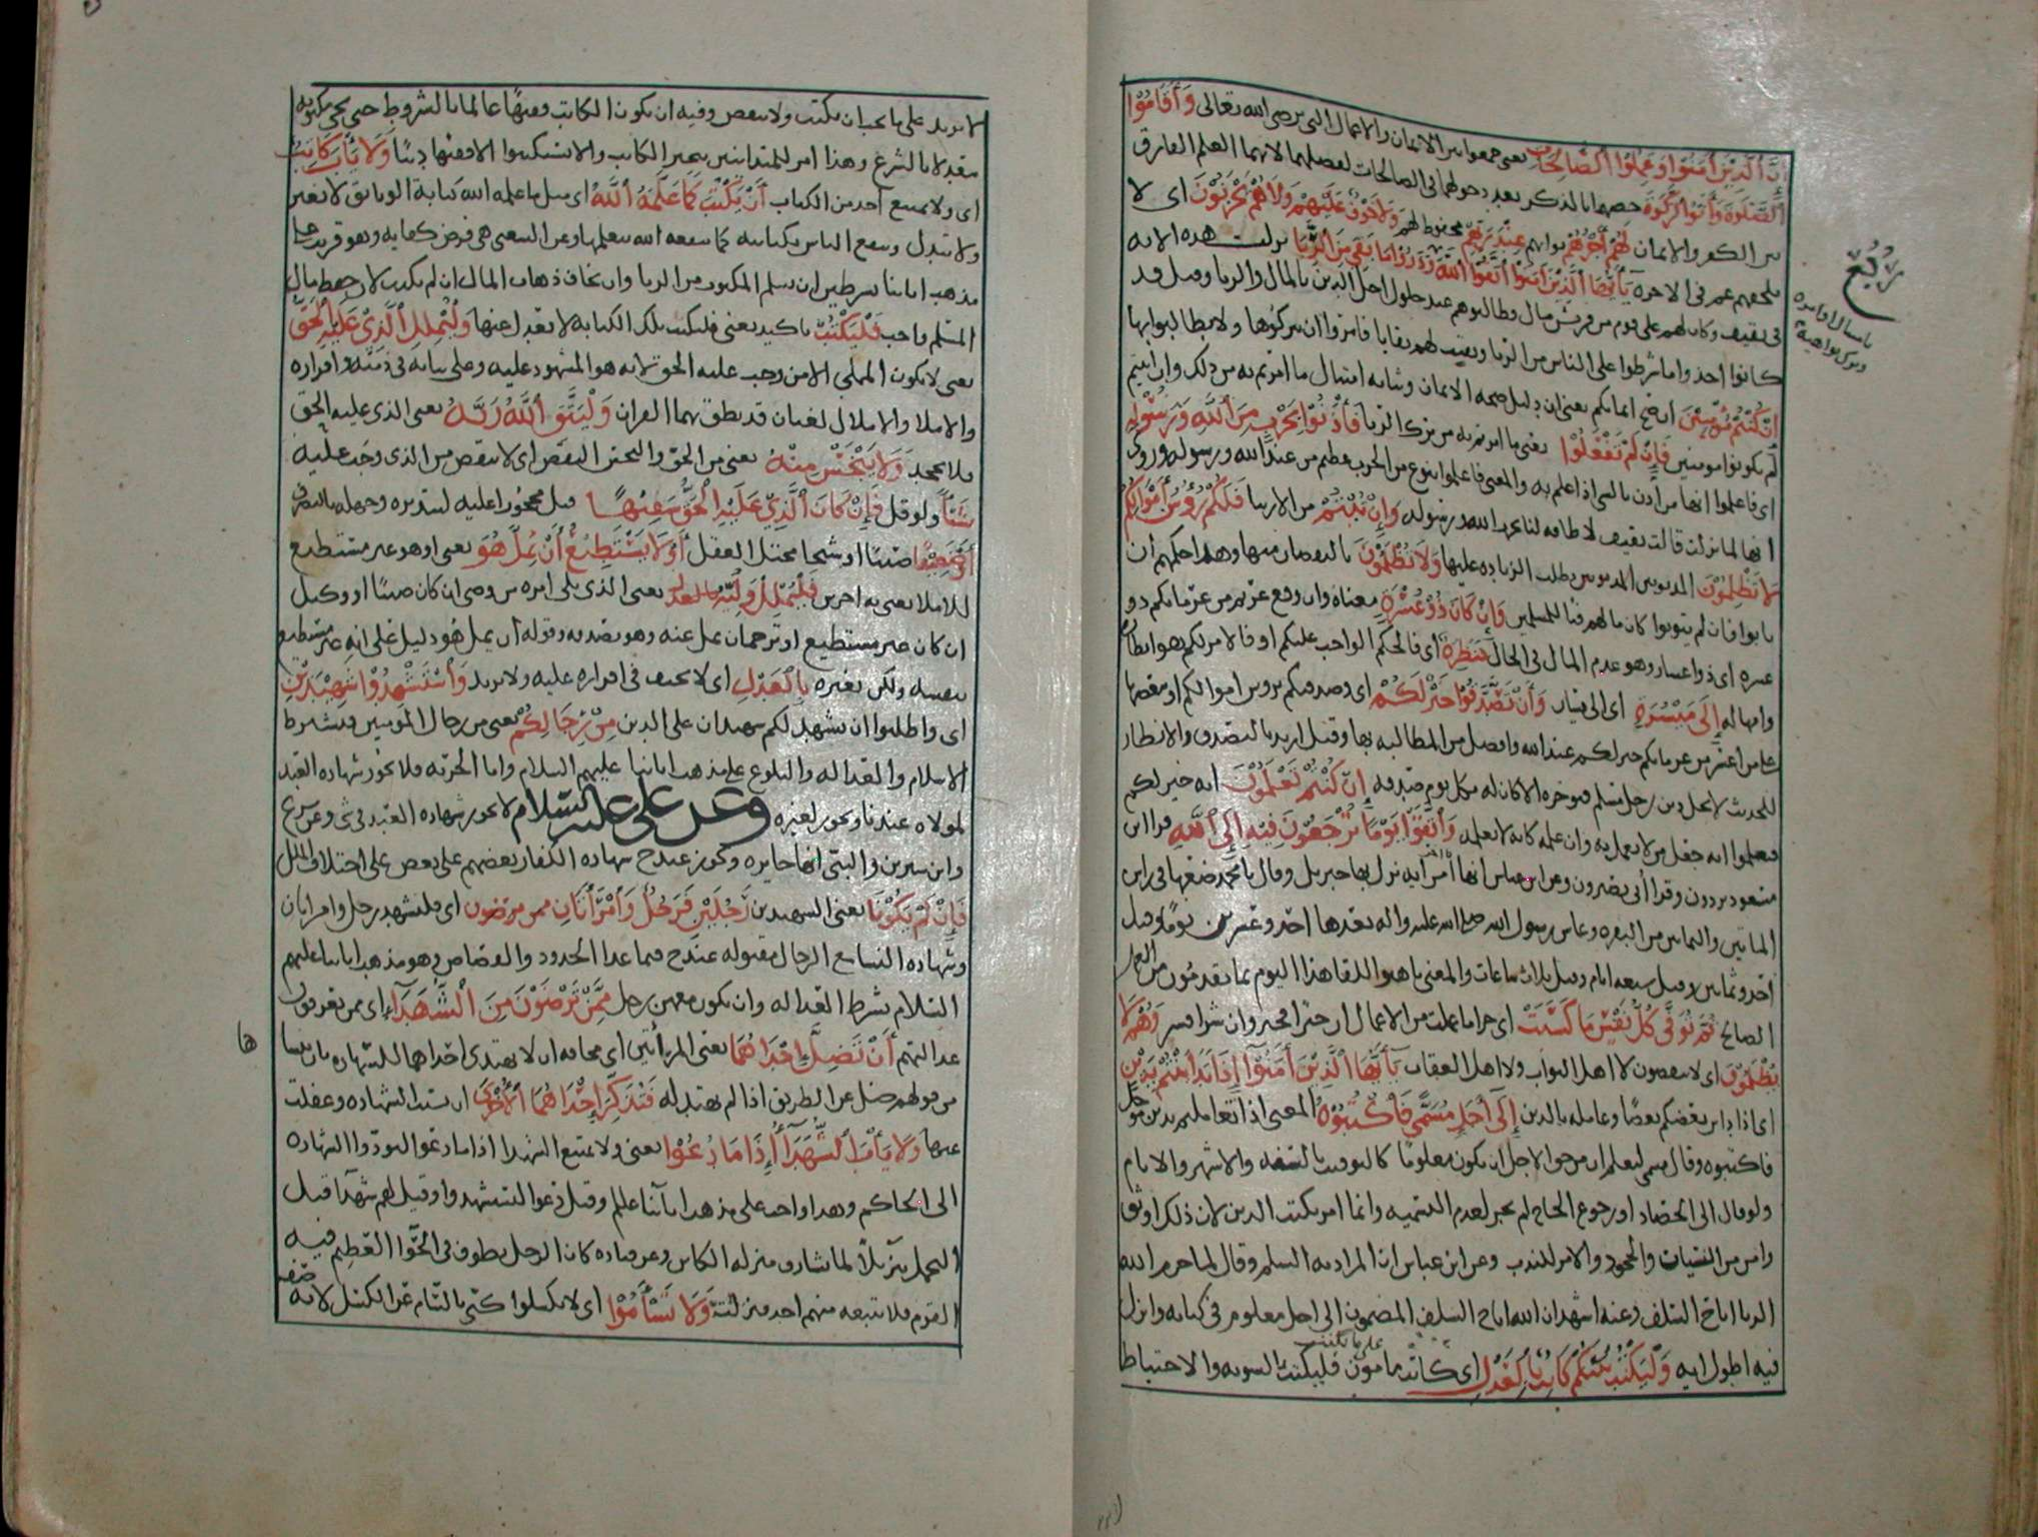 إن الذين آمنوا وعملوا الصالحات يعني جمعوا بين الايمان والاعمال التي يرضى الله تعالى وأقاموا
الصلوة وآتوا الزكوة خصهما بالذكر بعد دخولهما في الصالحات لفضلهما لانهما العلم الفارق
بين الكفر والايمان لهم أجرهم ثوابهم عند ربهم محفوظ لهم ولا خوف عليهم ولا هم يحزنون اى لا
يلحقهم غم في الاخرة يا أيها الذين آمنوا اتقوا الله وذروا ما بقي من الربا نزلت هذه الاية
في ثقيف وكان لهم على قوم من قريش مال وطالبوهم عند حلول اجل الدين بالمال والربا وقيل قد
كانوا اخذوا ما شرطوا على الناس من الربا وبقيت لهم بقايا فامروا ان يتركوها ولا يطالبوا بها
إن كنتم مؤمنين ان صح ايمانكم يعني ان دليل صحة الايمان وثباته امتثال ما امرتم به من ذلك وان ابيتم
لم تكونوا مومنين فإن لم تفعلوا يعني ما امرتم به من ترك الربا فأذنوا بحرب من الله ورسوله
اى فاعلموا انها من اذن بالشي اذا علم به والمعنى فاعلموا بنوع من الحرب عظيم من عند الله ورسوله وروى
انها لما نزلت قالت ثقيف لا طاقة لنا بحرب الله ورسوله وإن تبتم من الاربا فلكم رؤس أموالكم
لا تظلمون المديونين بطلب الزيادة عليها ولا تظلمون بالنقصان منها وهذا حكمهم ان
تابوا فان لم يتوبوا كان مالهم فيا للمسلمين وإن كان ذو عسرة معناه وان وقع غريم من غرمائكم ذو
عسرة اى ذو اعسار وهو عدم المال في الحال فنظرة اى فالحكم الواجب عليكم او فالامر لكم هو انظار
وامهاله إلى ميسرة اى الى يسار وأن تصدقوا خير لكم اى وصدقتكم بروس اموالكم او بعضها
على من اعسر من غرمائكم خير لكم عند الله وافضل من المطالبة بها وقيل اريد بالتصدق والانظار
للحديث لا يحل دين رجل مسلم فيوخره الا كان له بكل يوم صدقة إن كنتم تعلمون انه خير لكم
فتعملوا به جعل من لا يعمل به وان علمه كانه لا يعلمه واتقوا يوما ترجعون فيه إلى الله قرا ابن
مسعود تردون وقرا أبي تصيرون وعن ابن عباس انها آخر آية نزل بها جبريل وقال يا محمد ضعها في راس
المايتين والثمانين من البقرة وعاش رسول الله صلى الله عليه واله بعدها احد وعشرين يوما وقيل
احد وثمانين وقيل سبعة ايام وقيل ثلاث ساعات والمعنى تاهبوا للقا هذا اليوم بما تقدمون من العمل
الصالح ثم توفى كل نفس ما كسبت اى جزا ما عملت من الاعمال ان خيرا فخير وان شرا فشر وهم لا
يظلمون اى لا ينقصون لا اهل الثواب ولا اهل العقاب يا أيها الذين آمنوا إذا تداينتم بدين
اى اذا داين بعضكم بعضا وعامله بالدين إلى أجل مسمى فاكتبوه المعنى اذا تعاملتم بدين موجل
فاكتبوه وقال مسمى ليعلم ان من حق الاجل ان يكون معلوما كالتوقيت بالسنة والاشهر والايام
ولو قال الى الحصاد او رجوع الحاج لم يجز لعدم التسمية وانما امر بكتب الدين لان ذلك اوثق
وامن من النسيان والجحود والامر للندب وعن ابن عباس ان المراد به السلم وقال لما حرم الله
الربا اباح السلف وعنه اشهد ان الله اباح السلف المضمون الى اجل معلوم في كتابه وانزل
فيه اطول اية وليكتب بينكم كاتب بالعدل اى كاتب مامون على ما يكتب فليكتب بالسوية والاحتياط
ربع
لا يزيد على ما يجب ان يكتب ولا ينقص وفيه ان يكون الكاتب فقيها عالما بالشروط حتى يجي مكتوبه
معدلا بالشرع وهذا امر للمتداينين بتخير الكاتب والا يستكتبوا الا فقيها دينا ولا يأب كاتب
اى ولا يمتنع احد من الكتاب أن يكتب كما علمه الله اى مثل ما علمه الله كتابة الوثائق لا يغير
ولا يبدل وينفع الناس بكتابته كما نفعه الله بتعليمها وعن الشعبي هي فرض كفاية وهو قريب على
مذهب ابائنا بشرطين ان يسلم المكتوب من الربا وان يخاف ذهاب المال ان لم يكتب لان حفظ مال
المسلم واجب فليكتب تاكيد يعني فليكتب تلك الكتابة لا يعدل عنها وليملل الذي عليه الحق
يعني لا يكون المملي الا من وجب عليه الحق لانه هو المشهود عليه وعلى ثباته في ذمته واقراره
والاملا والاملال لغتان قد نطق بهما القران وليتق الله ربه يعني الذي عليه الحق
فلا يجحد ولا يبخس منه يعني من الحق والبخس النقص اى لا ينقص من الذي وجب عليه
شيئا ولو قل فإن كان الذي عليه الحق سفيها قيل محجورا عليه لتبذيره وجهله بالتصرف
أو ضعيفا صبيا او شيخا مختل العقل أو لا يستطيع أن يمل هو يعني او هو غير مستطيع
للاملا يعني به اخرس فليملل وليه بالعدل يعني الذي يلي امره من وصي ان كان صبيا او وكيل
ان كان غير مستطيع او ترجمان يمل عنه وهو يصدقه وقوله أن يمل هو دليل على انه غير مستطيع
بنفسه ولكن بغيره بالعدل اى لا يحيف في اقراره عليه ولا يزيد واستشهدوا شهيدين
اى واطلبوا ان يشهد لكم شهيدان على الدين من رجالكم يعني من رجال المومنين فيشترط
الاسلام والعدالة والبلوغ على مذهب ابائنا عليهم السلام واما الحرية فلا يجوز شهادة العبد
لمولاه عندنا ويجوز لغيره وعن علي عليه السلام لا يجوز شهادة العبد في شي وعن شريح
وابن سيرين والبتي انها جايزة ويجوز عند ح شهادة الكفار بعضهم على بعض على اختلاف الملل
فإن لم يكونا يعني الشهيدين رجلين فرجل وامرأتان ممن ترضون اى فليشهد رجل وامراتان
وشهادة النسا مع الرجال مقبولة عند ح فيما عدا الحدود والقصاص وهو مذهب ابائنا عليهم
السلام بشرط العدالة وان يكون معهن رجل ممن ترضون من الشهداء اى ممن تعرفون
عدالتهم أن تضل إحداهما يعني المراتين اى مخافة ان لا يهتدى احداهما للشهادة بان ينسا
من قولهم ضل عن الطريق اذا لم يهتد له فتذكر إحداهما الأخرى ان نسيت الشهادة وغفلت
عنها ولا يأب الشهداء إذا ما دعوا يعني ولا يمتنع الشهدا اذا ما دعوا ليودوا الشهادة
الى الحاكم وهذا واجب على مذهب ابائنا علم وقيل دعوا ليستشهدوا وقيل لهم شهدا قبل
التحمل تنزيلا لما يشارف منزلة الكاين وعن قتادة كان الرجل يطوف في الحوا العظيم فيه
القوم فلا يتبعه منهم احد فنزلت ولا تسأموا اى لا تكسلوا كنى بالسام عن الكسل لانه صفة
ها